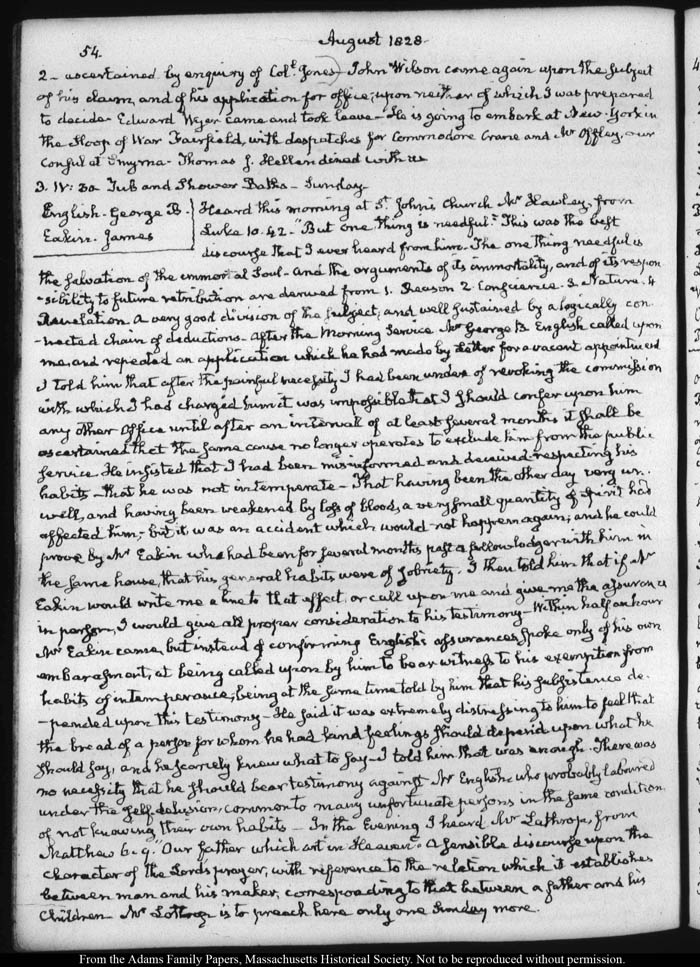 54.
August 1828
2 - ascertained by enquiry of Col. Jones) John Wilson came again upon the subject
of his claim, and of his application for office; upon neither of which I was prepared
to decide. Edward Wyer came and took leave - He is going to embark at New-York in
the Sloop of War Fairfield, with despatches for Commodore Crane and Mr Offley, our
Consul at Smyrna. Thomas J. Hellen dined with us
3. IV: 30 Tub and Shower Baths - Sunday
English. George B.
Eakin. James
Heard this morning at St. John's Church Mr Hawley, from
Luke 10.42. "But one thing is needful." This was the best
discourse that I ever heard from him. The one thing needful is
the Salvation of the immortal Soul - and the arguments of its immortality, and of its respon
-sibility to future retribution are derived from 1. Reason 2 Conscience. 3 Nature. 4
Revelation. A very good division of the subject; and well sustained by a logically con
-nected chain of deductions. After the Morning Service Mr George B. English called upon
me, and repeated an application which he had made by Letter for a vacant appointment
I told him that after the painful necessity I had been under of revoking the commission
with which I had charged him it was impossible that I should confer upon him
any other Office until after an interval of at least several months it shall be
ascertained that the same cause no longer operates to exclude him from the public
service. He insisted that I had been misinformed and deceived respecting his
habits - that he was not intemperate - That having been the other day very un-
well, and having been weakened by loss of blood, a very small quantity of Spirit had
affected him; but it was an accident which would not happen again; and he could
prove by Mr Eakin who had been for several months past a fellow lodger with him in
the same house, that his general habits were of sobriety. I then told him that if Mr
Eakin would write me a line to that effect, or call upon me and give me the assurance
in person, I would give all proper consideration to his testimony. Within half an hour
Mr Eakin came, but instead of confirming English's assurances spoke only of his own
embarassment, at being called upon by him to bear witness to his exemption from
habits of intemperance; being at the same time told by him that his subsistence de-
-pended upon this testimony - He said it was extremely distressing to him to feel that
the bread of a person for whom he had kind feelings should depend upon what he
should say, and he scarcely knew what to say - I told him that was enough. There was
no necessity that he should bear testimony against Mr English who probably laboured
under the self delusion, common to many unfortunate persons in the same condition
of not knowing their own habits - In the Evening I heard Mr Lothrop, from
Matthew 6.9. "Our father which art in Heaven." A sensible discourse upon the
character of the Lords prayer, with reference to the relation which it establishes
between man and his maker, corresponding to that between a father and his
Children - Mr Lothrop is to preach here only one Sunday more.
From the Adams Family Papers, Massachusetts Historical Society. Not to be reproduced without permission.